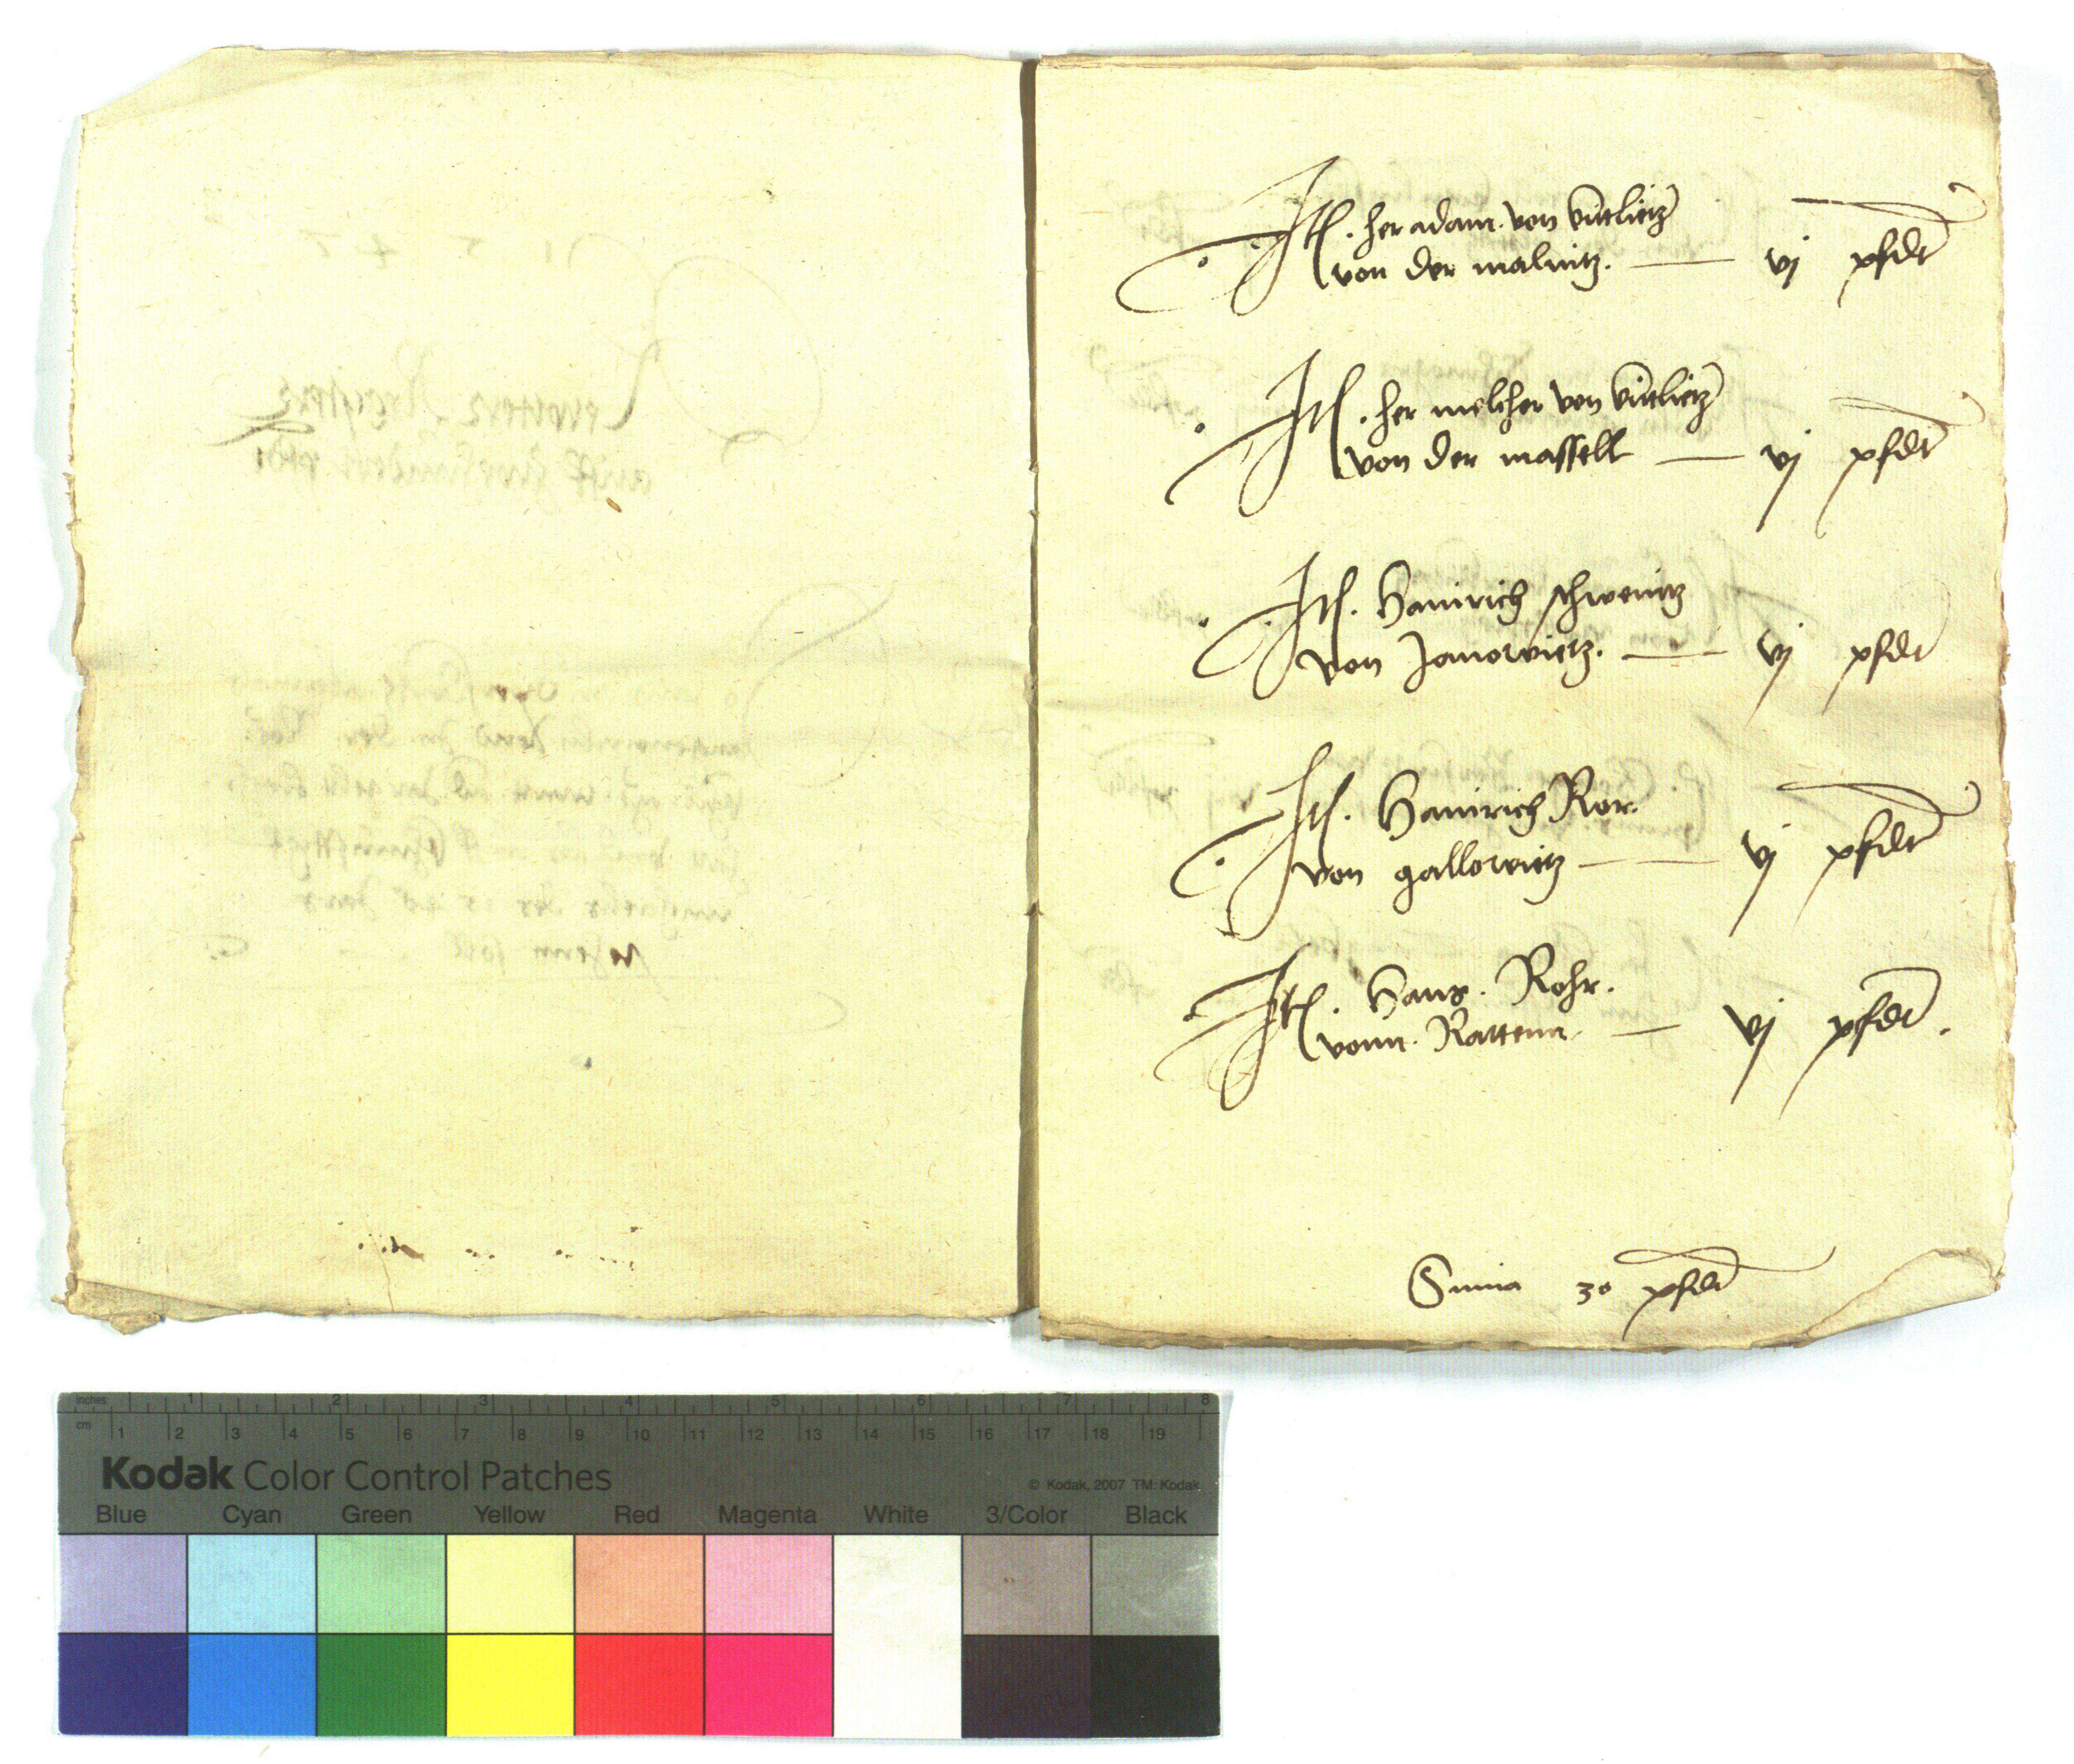 Itē. her adam. von kūtlietz
von der malnitz. — vj pfdt
Itē. her melcher von kūtlietz
von der massell — vj pfdt
Itē. Hainrich schwenitz
von Janowietz. — vj pfdt
Itē. Hainrich Ror.
von gallowietz — vj pfdt
Itē. Hans. Rohr.
vonn. Rattenn. — vj pfdt.
Suma 30 pfdt
inches 1 2 3 4 5 6 7 8
cm 1 2 3 4 5 6 7 8 9 10 11 12 13 14 15 16 17 18 19
Kodak Color Control Patches
© Kodak, 2007 TM: Kodak
Blue Cyan Green Yellow Red Magenta White 3/Color Black